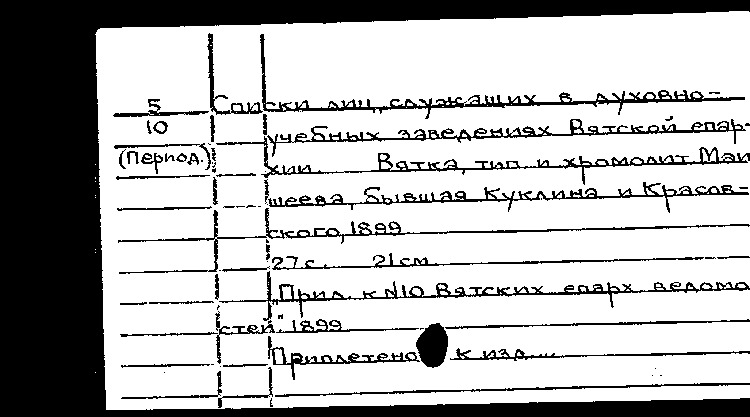 5 Списки лиц, служащих в духовно-
10 учебных заведениях Вятской епар-
(Период.) хии. Вятка, тип. и хромолит. Маи
шеева, бывшая Куклина и Красов-
ского, 1899
27 с. 21 см.
"Прил. к N10 Вятских епарх ведомо
стей." 1899
Приплетено к изд....